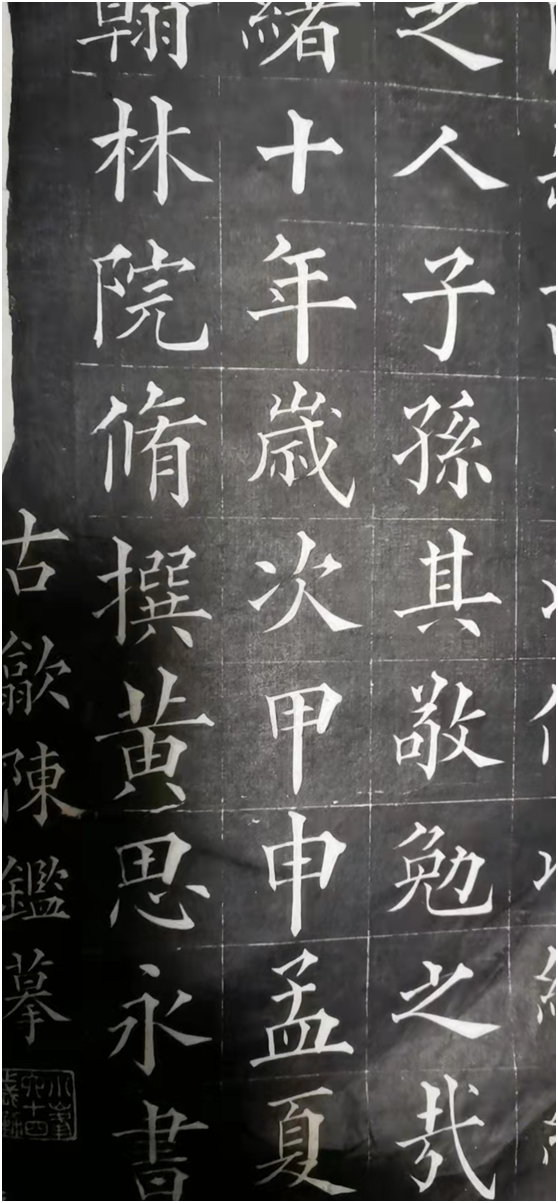 之人子孫其敬勉之哉
緒十年歲次甲申孟夏
翰林院脩撰黃思永書
古歙陳鑑摹